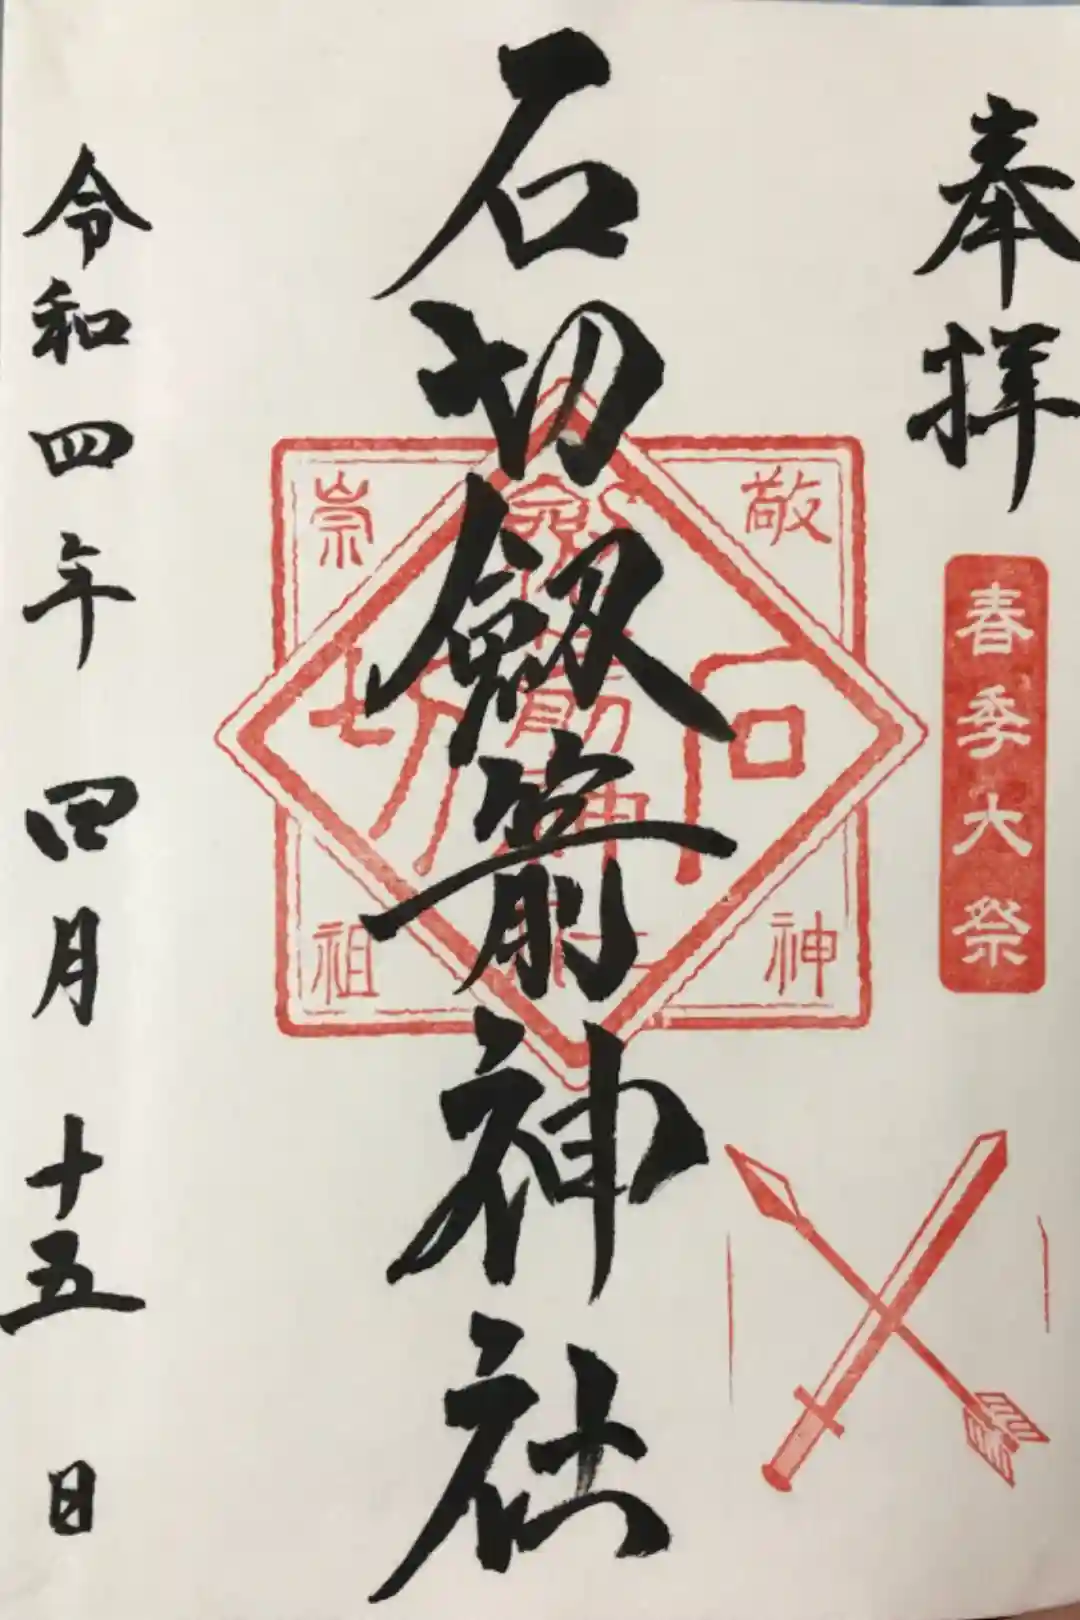 奉拝
春季大祭
石切剱箭神社
敬神
崇祖
石切
剱箭神社
令和四年四月十五日